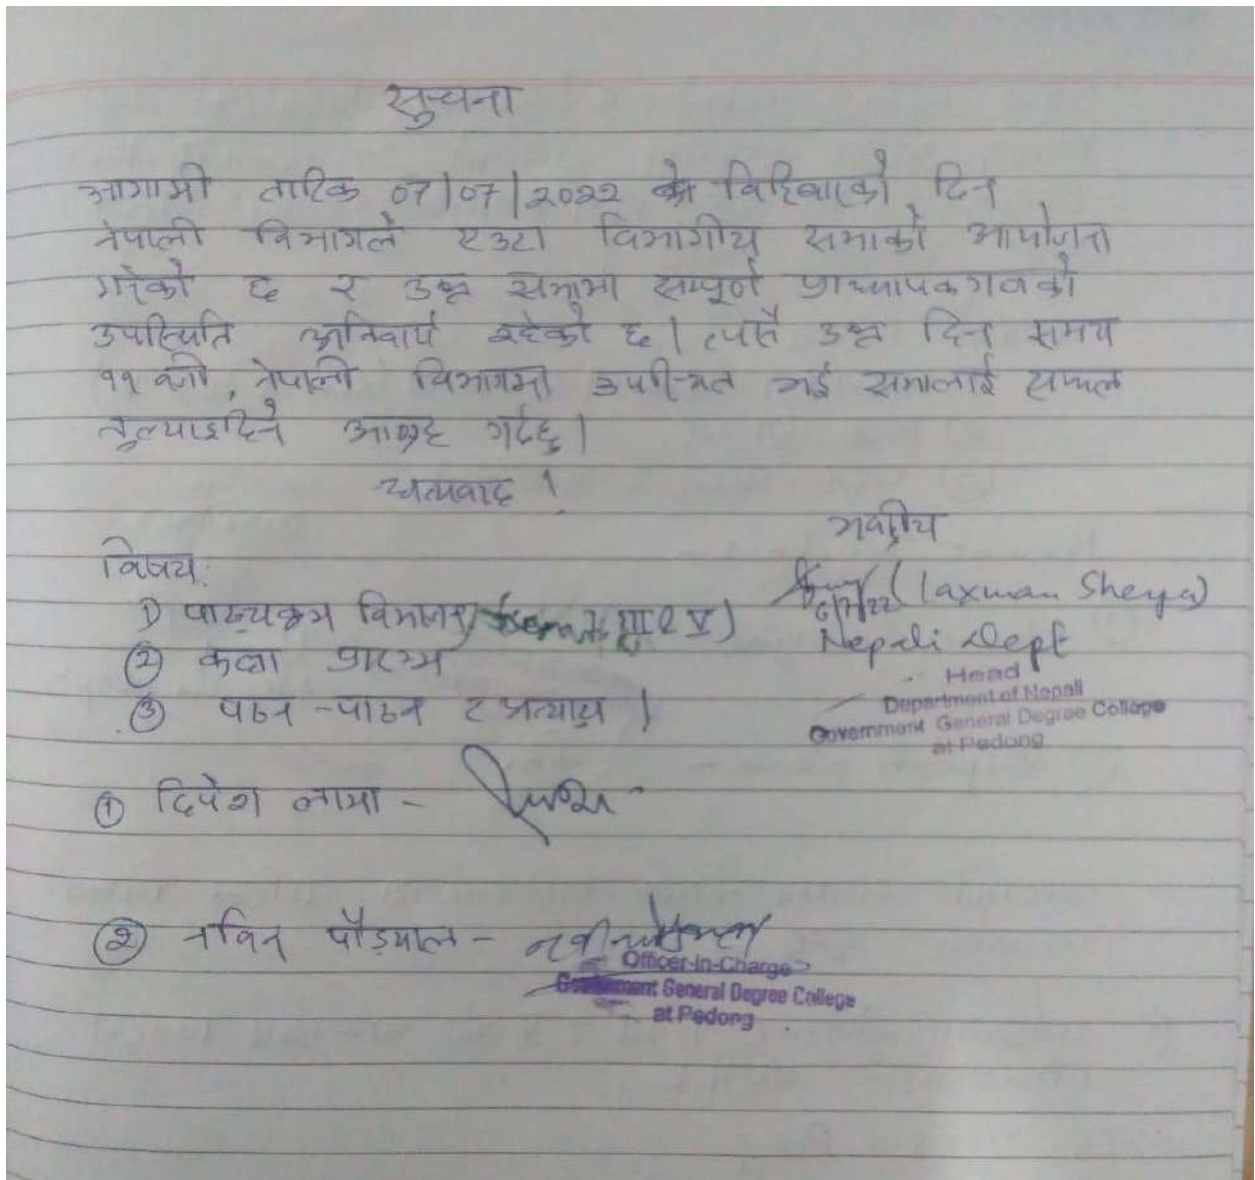 सुचना
आगामी तारिक 07/07/2022 विहिवारको दिन
नेपाली विभागले एउटा विभागीय सभाको आयोजना
गरेको छ र उक्त सभामा सम्पूर्ण प्राध्यापकगणको
उपस्थिति अनिवार्य रहेको छ। त्यसै उक्त दिन समय
११ बजी, नेपाली विभागमा उपस्थित भई सभालाई सफल
तुल्याइदिने आग्रह गर्दछु।
धन्यवाद !
भवदीय
(Laxman Sherpa)
6/7/22
Nepali Dept
Head
Department of Nepali
Government General Degree College
at Pedong
विषय:
1) पाठ्यक्रम विभाजन ( III & V)
② कक्षा प्रारम्भ
③ पठन-पाठन र
① दिपेश लामा -
② नविन पौड्याल -
Officer-in-Charge
Government General Degree College
at Pedong